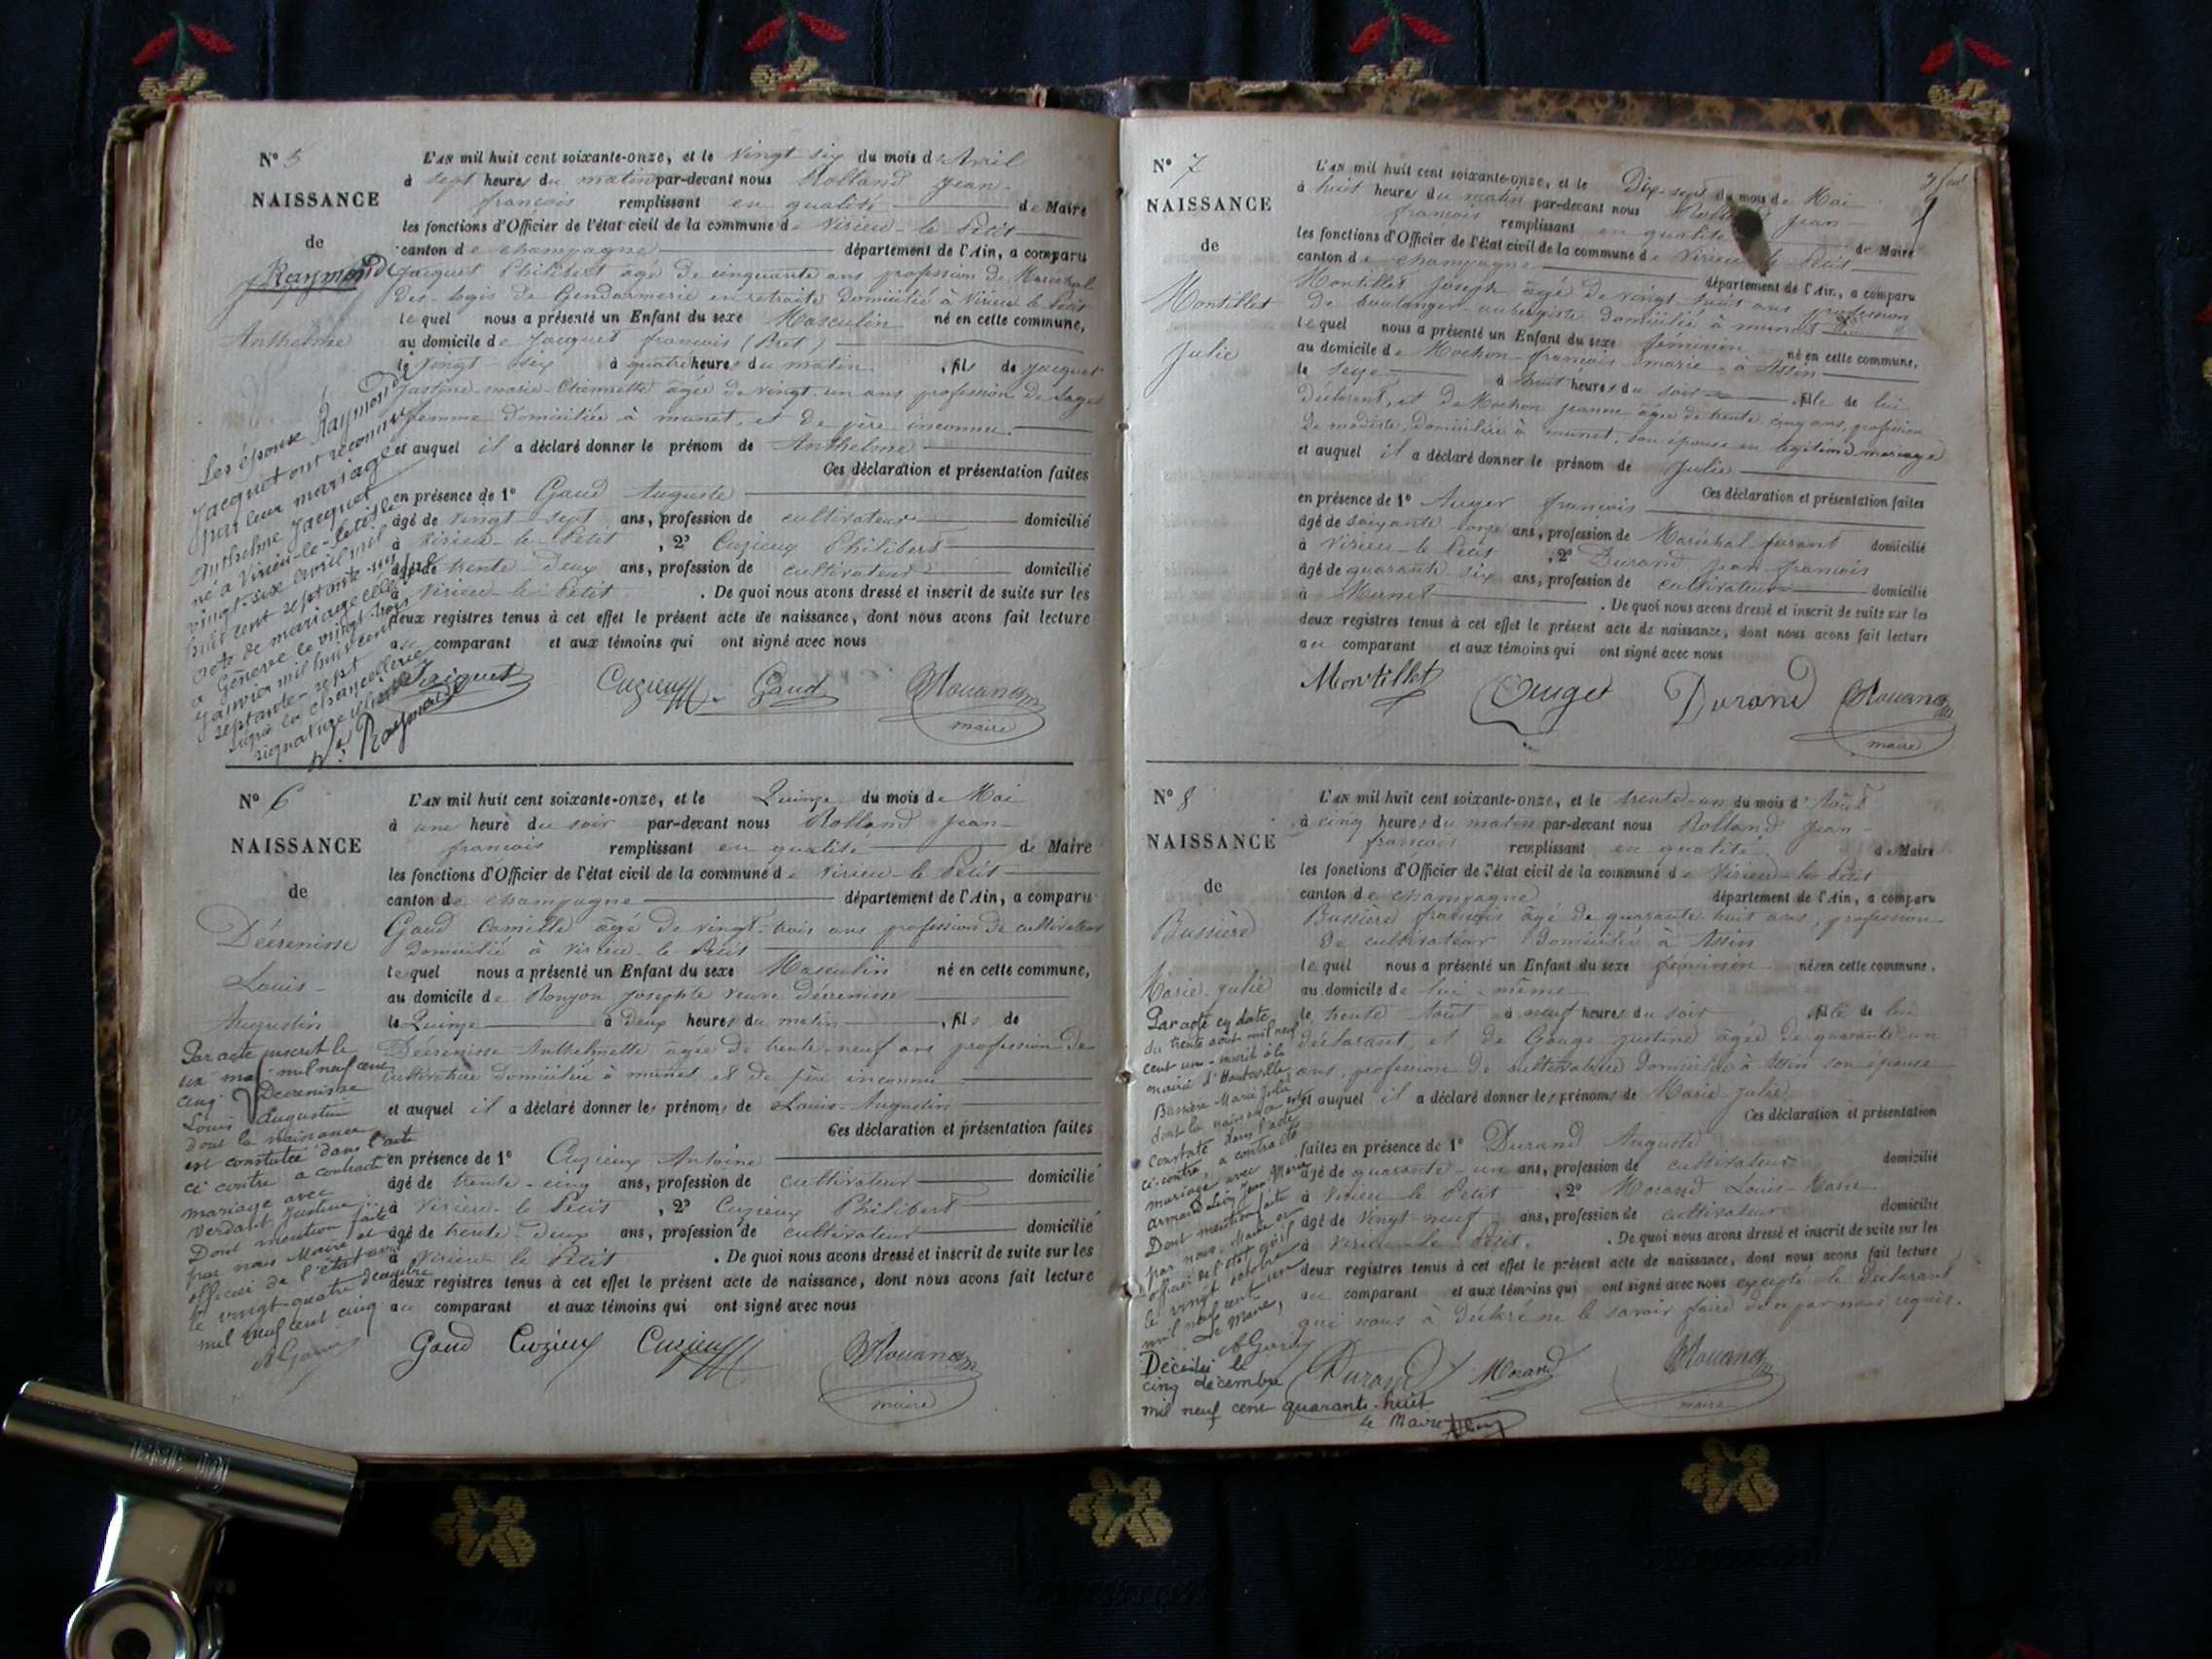 N° 5
NAISSANCE
de
Raymond
Anthelme
L'AN mil huit cent soixante-onze, et le vingt six du mois d'Avril
à sept heures du matin par-devant nous Rolland Jean-
françois remplissant en qualité de Maire
les fonctions d'Officier de l'état civil de la commune de Virieu-le-Petit
canton de champagne département de l'Ain, a comparu
Jacquet Philibert âgé de cinquante ans profession de Maréchal
des-logis de Gendarmerie en retraite domicilié à Virieu le Petit
lequel nous a présenté un Enfant du sexe Masculin né en cette commune,
au domicile de Jacquet francois (Bret)
le vingt-six à quatre heures du matin, fils de Jacquet
Justine-marie- âgée de vingt-un ans profession de Sage
femme domiciliée à munet, et de père inconnu.
et auquel il a déclaré donner le prénom de Anthelme
Ces déclaration et présentation faites
en présence de 1° Gaud Auguste
âgé de vingt-sept ans, profession de cultivateur domicilié
à Virieu-le-Petit, 2° Cuzieux Philibert
âgé de trente-deux ans, profession de cultivateur domicilié
à Virieu-le-Petit. De quoi nous avons dressé et inscrit de suite sur les
deux registres tenus à cet effet le présent acte de naissance, dont nous avons fait lecture
au comparant et aux témoins qui ont signé avec nous
Les époux Raymond
Jacquet ont reconnu
par leur mariage
Anthelme Jacquet
né à Virieu-le-Petit le
vingt-six avril mil
huit cent septante-un
acte de mariage
à Genève le vingt-trois
Janvier mil huit cent
septante-sept
la chancellerie
signature
Raymond
Jacquet Cuzieux Gaud JRolland
maire
N° 6
NAISSANCE
de
Décrenisse
Louis-
Augustin
L'AN mil huit cent soixante-onze, et le Quinze du mois de Mai
à une heure du soir par-devant nous Rolland Jean-
françois remplissant en qualité de Maire
les fonctions d'Officier de l'état civil de la commune de Virieu-le-Petit
canton de champagne département de l'Ain, a comparu
Gaud Camille âgé de vingt-trois ans profession de cultivateur
domicilié à Virieu-le-Petit
lequel nous a présenté un Enfant du sexe Masculin né en cette commune,
au domicile de Josephte veuve Décrenisse
le Quinze à deux heures du matin, fils de
Décrenisse Anthelmette âgée de trente-neuf ans profession de
cultivatrice domiciliée à munet et de père inconnu
et auquel il a déclaré donner les prénoms de Louis-Augustin
Ces déclaration et présentation faites
en présence de 1° Cuzieux Antoine
âgé de trente-cinq ans, profession de cultivateur domicilié
à Virieu-le Petit, 2° Cuzieux Philibert
âgé de trente-deux ans, profession de cultivateur domicilié
à Virieu le Petit. De quoi nous avons dressé et inscrit de suite sur les
deux registres tenus à cet effet le présent acte de naissance, dont nous avons fait lecture
au comparant et aux témoins qui ont signé avec nous
Par acte inscrit le
six mai mil neuf cent
cinq Décrenisse
Louis Augustin
dont la naissance
est constatée dans l'acte
ci contre a contracté
mariage avec
Verdant Justine
Dont mention faite
par nous Maire et
officier de l'état civil
le vingt-quatre décembre
mil neuf cent cinq
Gaud Cuzieux Cuzieux JRolland
maire
N° 7
NAISSANCE
de
Montillet
Julie
L'AN mil huit cent soixante-onze, et le Dix-sept du mois de Mai
à huit heures du matin par-devant nous Rolland Jean-
françois remplissant en qualité de Maire
les fonctions d'Officier de l'état civil de la commune de Virieu-le-Petit
canton de champagne département de l'Ain, a comparu
Montillet Joseph âgé de vingt-huit ans profession
de boulanger-aubergiste domicilié à munet
lequel nous a présenté un Enfant du sexe féminin né en cette commune,
au domicile de Mochon-françois-marie-à Assin
le seize à huit heures du soir, fille de lui
déclarant, et de Mochon jeanne âgée de trente cinq ans, profession
de modiste, domiciliée à munet, son épouse en légitime mariage
et auquel il a déclaré donner le prénom de Julie
Ces déclaration et présentation faites
en présence de 1° Auger françois
âgé de soixante-onze ans, profession de Maréchal-ferrant domicilié
à Virieu-le Petit, 2° Durand Jean-françois
âgé de quarante-six ans, profession de cultivateur domicilié
à Munet. De quoi nous avons dressé et inscrit de suite sur les
deux registres tenus à cet effet le présent acte de naissance, dont nous avons fait lecture
au comparant et aux témoins qui ont signé avec nous
Montillet Auger Durand JRolland
maire
N° 8
NAISSANCE
de
Bussière
Marie-Julie
L'AN mil huit cent soixante-onze, et le trente-un du mois d'Août
à cinq heures du matin par-devant nous Rolland Jean-
françois remplissant en qualité de Maire
les fonctions d'Officier de l'état civil de la commune de Virieu-le-Petit
canton de champagne département de l'Ain, a comparu
Bussière françois âgé de quarante-huit ans, profession
de cultivateur domicilié à Assin
lequel nous a présenté un Enfant du sexe féminin né en cette commune,
au domicile de lui-même
le trente Août à neuf heures du soir, fille de lui
déclarant, et de Gouge justine âgée de quarante-un
ans, profession de cultivatrice domiciliée à Assin son épouse
et auquel il a déclaré donner les prénoms de Marie-Julie
Ces déclaration et présentation
faites en présence de 1° Durand Auguste
âgé de quarante-un ans, profession de cultivateur domicilié
à Virieu-le Petit, 2° Morand Louis-Marie
âgé de vingt-neuf ans, profession de cultivateur domicilié
à Virieu-le-Petit. De quoi nous avons dressé et inscrit de suite sur les
deux registres tenus à cet effet le présent acte de naissance, dont nous avons fait lecture
au comparant et aux témoins qui ont signé avec nous excepté le déclarant
qui nous a déclaré ne le savoir faire de ce par nous requis.
Par acte en date
du trente août mil neuf
cent un inscrit à la
mairie d'Hauteville
Bussière Marie Julie
dont la naissance est
constatée dans l'acte
ci-contre, a contracté
mariage avec
Armand Jean Marie
Dont mention faite
par nous Maire et
officier de l'état civil
le vingt octobre
mil neuf cent un
Le Maire,
Décédée le
cinq décembre
mil neuf cent quarante-huit
Le Maire
Durand Morand JRolland
maire